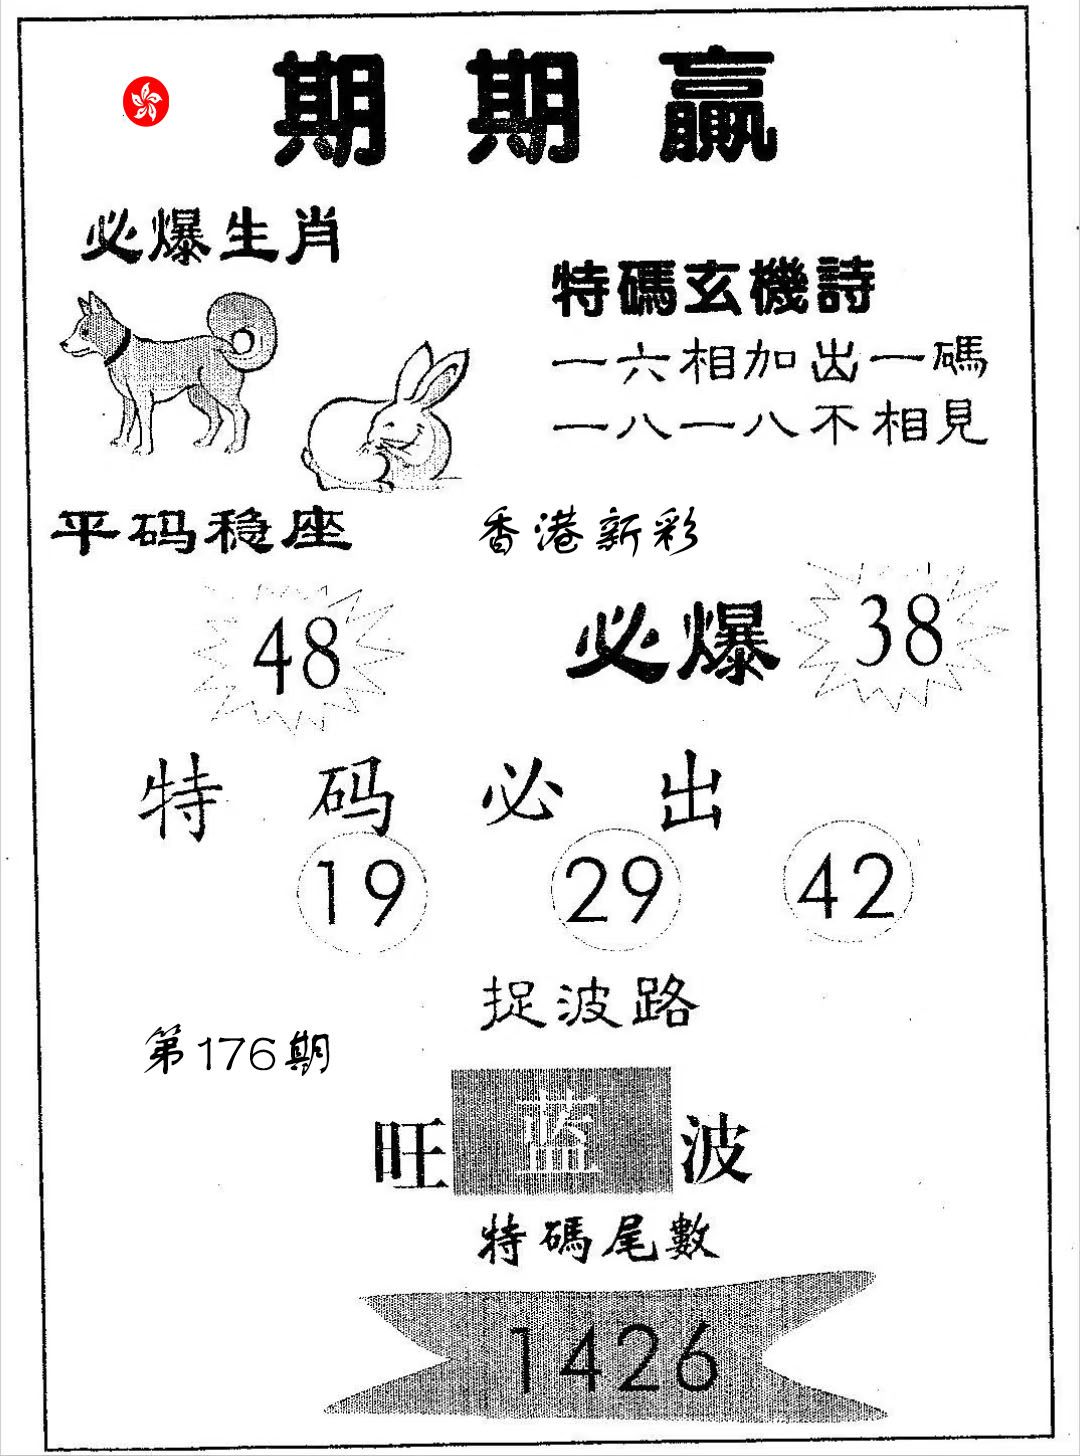 期期贏
必爆生肖
特碼玄機詩
一六相加出一碼
一八一八不相見
平码稳座
香港新彩
48
必爆 38
特码必出
19 29 42
捉波路
第176期
旺蓝波
特碼尾數
1426